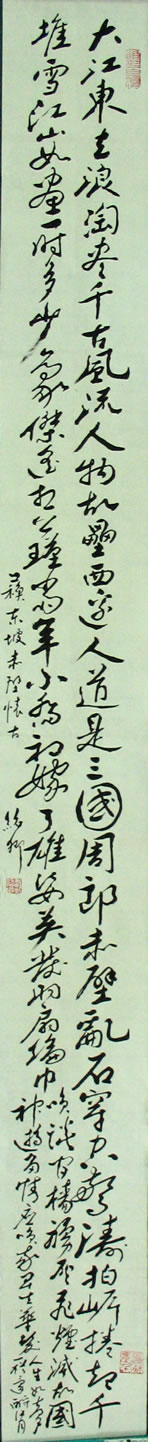 大江東去浪淘盡千古風流人物故壘西邊人道是三國周郎赤壁亂石穿空驚濤拍岸捲起千
堆雪江山如畫一時多少豪傑遙想公瑾當年小喬初嫁了雄姿英發羽扇綸巾
笑談間檣櫓灰飛煙滅故國
神遊多情應笑我早生華髮
人生如夢
一尊還酹江月
蘇东坡赤壁懷古